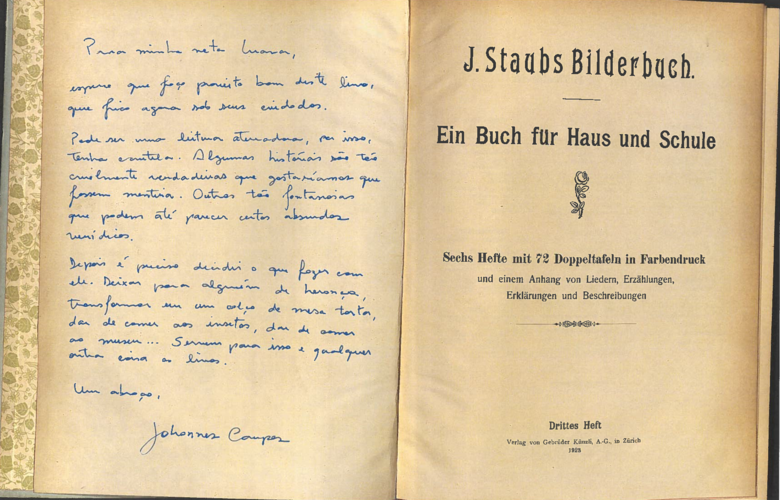 Para minha neta Luara,
espero que faça proveito bom deste livro,
que fica agora sob seus cuidados.
Pode ser uma leitura atenuadora, por isso,
tenha cautela. Algumas histórias são tão
cruelmente verdadeiras que gostaríamos que
fossem mentira. Outras tão fantasiosas
que podem até parecer certos absurdos
verídicos.
Depois é preciso decidir o que fazer com
ele. Deixar para alguém de herança,
transformar em um calço de mesa torta,
dar de comer aos insetos, dar de comer
ao museu... Servem para isso e qualquer
outra coisa os livros.
Um abraço,
Johannes
J. Staubs Bilderbuch.
Ein Buch für Haus und Schule
Sechs Hefte mit 72 Doppeltafeln in Farbendruck
und einem Anhang von Liedern, Erzählungen,
Erklärungen und Beschreibungen
Drittes Heft
Verlag von Gebrüder Künzli, A.-G., in Zürich